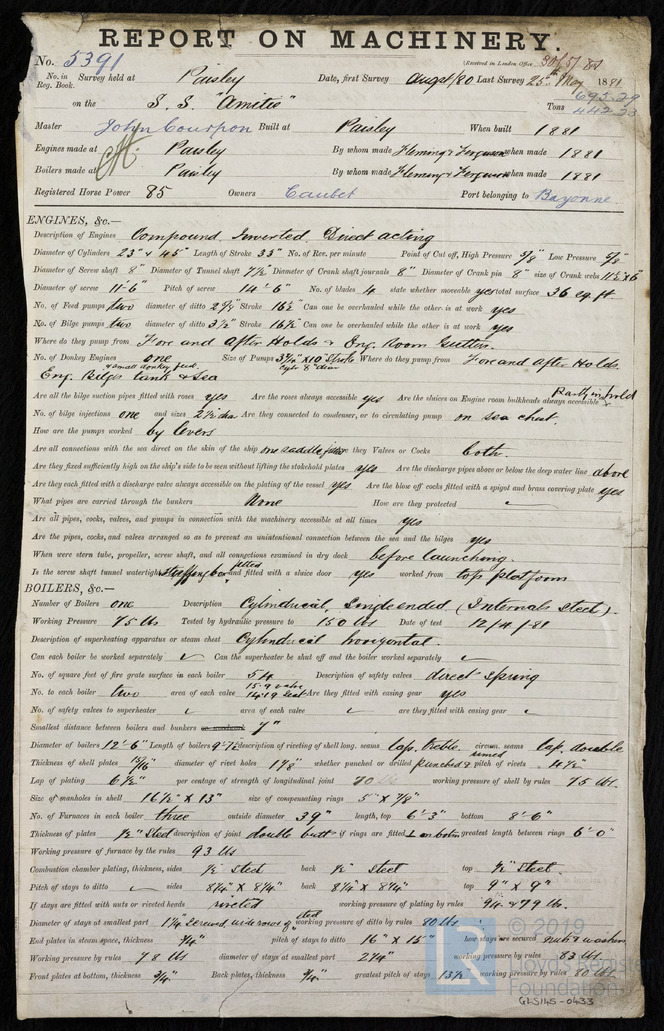 REPORT ON MACHINERY.
No. 5391
(Received in London Office
No. in Reg. Book. Survey held at Paisley Date, first Survey Augst/80 Last Survey 25th May 1881
on the S.S. "Amitié" Tons 442.23
Master John Courpon Built at Paisley When built 1881
Engines made at Paisley By whom made Fleming & Ferguson when made 1881
Boilers made at Paisley By whom made Fleming & Ferguson when made 1881
Registered Horse Power 85 Owners Caubet Port belonging to Bayonne
ENGINES, &c.—
Description of Engines Compound Inverted Direct acting
Diameter of Cylinders 23" & 45" Length of Stroke 33" No. of Rev. per minute Point of Cut off, High Pressure 5/8" Low Pressure 5/8"
Diameter of Screw shaft 8" Diameter of Tunnel shaft 7 1/2" Diameter of Crank shaft journals 8" Diameter of Crank pin 8" size of Crank webs 11 1/2 x 6"
Diameter of screw 11-6" Pitch of screw 14'6" No. of blades 4 state whether moveable yes total surface 36 sq. ft.
No. of Feed pumps two diameter of ditto 2 3/4" Stroke 16 1/2" Can one be overhauled while the other is at work yes
No. of Bilge pumps two diameter of ditto 3 1/2" Stroke 16 1/2" Can one be overhauled while the other is at work yes
Where do they pump from Fore and After Holds & Eng. Room Gutters.
No. of Donkey Engines one & small donkey feed. Size of Pumps 3 3/4" x 10" Stroke Cylr 8" diar Where do they pump from Fore and After Holds.
Eng. Bilges tank & Sea
Are all the bilge suction pipes fitted with roses yes Are the roses always accessible yes Are the sluices on Engine room bulkheads always accessible Partly in hold
No. of bilge injections one and sizes 2 1/2 diar Are they connected to condenser, or to circulating pump on sea chest.
How are the pumps worked by levers
Are all connections with the sea direct on the skin of the ship one saddle Are they Valves or Cocks both.
Are they fixed sufficiently high on the ship's side to be seen without lifting the stokehold plates yes Are the discharge pipes above or below the deep water line above
Are they each fitted with a discharge valve always accessible on the plating of the vessel yes Are the blow off cocks fitted with a spigot and brass covering plate yes
What pipes are carried through the bunkers None How are they protected
Are all pipes, cocks, valves, and pumps in connection with the machinery accessible at all times yes
Are the pipes, cocks, and valves arranged so as to prevent an unintentional connection between the sea and the bilges yes
When were stern tube, propeller, screw shaft, and all connections examined in dry dock before launching.
Is the screw shaft tunnel watertight stuffing box fitted and fitted with a sluice door yes worked from top platform
BOILERS, &c.—
Number of Boilers one Description Cylindrical, Single ended (Internals Steel)
Working Pressure 75 lbs Tested by hydraulic pressure to 150 lbs Date of test 12/4/81
Description of superheating apparatus or steam chest Cylindrical horizontal.
Can each boiler be worked separately Can the superheater be shut off and the boiler worked separately
No. of square feet of fire grate surface in each boiler 54 Description of safety valves direct spring
No. to each boiler two area of each valve 15.9 valve 14.19 Seat Are they fitted with easing gear yes
No. of safety valves to superheater area of each valve are they fitted with easing gear
Smallest distance between boilers and bunkers 7"
Diameter of boilers 12'-6" Length of boilers 9-7 1/2 description of riveting of shell long. seams Lap. treble. circum. seams Lap. double
Thickness of shell plates 15/16" diameter of rivet holes 1 1/8" whether punched or drilled punched & rimed pitch of rivets 4 1/2"
Lap of plating 6 1/2" per centage of strength of longitudinal joint 70 working pressure of shell by rules 75 lbs.
Size of manholes in shell 16 1/2" x 13" size of compensating rings 5" x 7/8"
No. of Furnaces in each boiler three outside diameter 39" length, top 6'3" bottom 8'-6"
Thickness of plates 1/2" Steel description of joint double butt if rings are fitted on bottom greatest length between rings 6'0"
Working pressure of furnace by the rules 93 lbs
Combustion chamber plating, thickness, sides 1/2 Steel back 1/2" Steel top 1/2" Steel.
Pitch of stays to ditto sides 8 1/4" x 8 1/4" back 8 1/4" x 8 1/4" top 9" x 9"
If stays are fitted with nuts or riveted heads riveted working pressure of plating by rules 94 & 79 lb.
Diameter of stays at smallest part 1 1/4 screwed, steel working pressure of ditto by rules 80 lbs
End plates in steam space, thickness 3/4" pitch of stays to ditto 16" x 15" how stays are secured nuts & washers
Working pressure by rules 78 lbs diameter of stays at smallest part 2 1/4" working pressure by rules 83 lbs
Front plates at bottom, thickness 3/4" Back plates, thickness 3/4" greatest pitch of stays 13 1/2 working pressure by rules 80 lbs
© 2019
Lloyd's Register
Foundation
GLS145-0433